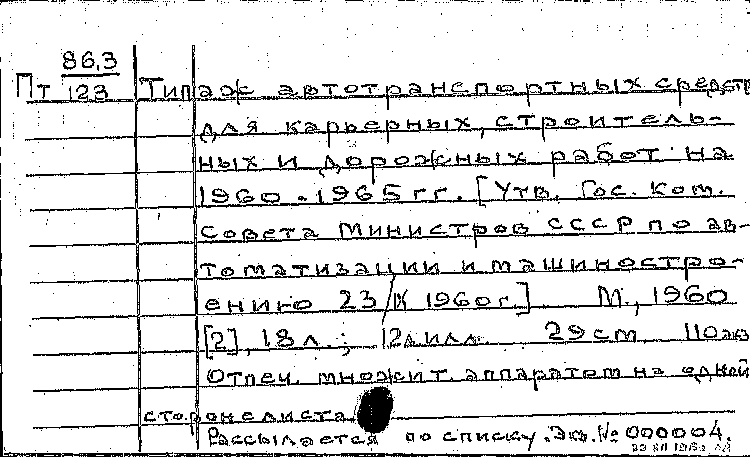 86,3
Пт 123 Типаж автотранспортных средств
для карьерных, строитель-
ных и дорожных работ на
1960-1965 гг. [Утв. Гос. Ком.
Совета Министров СССР по ав-
томатизации и машиностро-
ению 23/IX 1960г.] М., 1960
[2], 18 л.; 12 л илл. 29 см 110 экз
Отпеч. множит. аппаратом на одной
стороне листа
Рассылается по списку. Экз. № 000004.